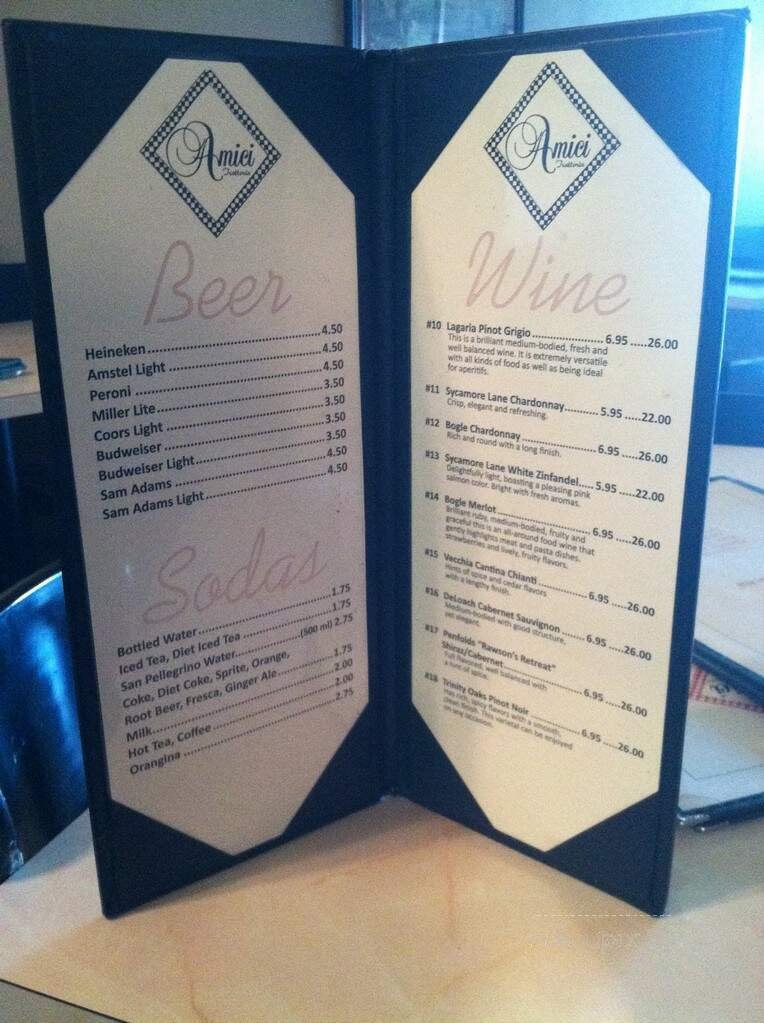 Amici
Trattoria
Beer
Heineken 4.50
Amstel Light 4.50
Peroni 4.50
Miller Lite 3.50
Coors Light 3.50
Budweiser 3.50
Budweiser Light 3.50
Sam Adams 4.50
Sam Adams Light 4.50
Sodas
Bottled Water 1.75
Iced Tea, Diet Iced Tea 1.75
San Pellegrino Water (500 ml) 2.75
Coke, Diet Coke, Sprite, Orange,
Root Beer, Fresca, Ginger Ale 1.75
Milk 2.00
Hot Tea, Coffee 2.00
Orangina 2.75
Amici
Trattoria
Wine
#10 Lagaria Pinot Grigio 6.95 26.00
This is a brilliant medium-bodied, fresh and
well balanced wine. It is extremely versatile
with all kinds of food as well as being ideal
for aperitifs.
#11 Sycamore Lane Chardonnay 5.95 22.00
Crisp, elegant and refreshing.
#12 Bogle Chardonnay 6.95 26.00
Rich and round with a long finish.
#13 Sycamore Lane White Zinfandel 5.95 22.00
Delightfully light, boasting a pleasing pink
salmon color. Bright with fresh aromas.
#14 Bogle Merlot 6.95 26.00
Brilliant ruby, medium-bodied, fruity and
graceful this is an all-around food wine that
gently highlights meat and pasta dishes.
strawberries and lively, fruity flavors.
#15 Vecchia Cantina Chianti 6.95 26.00
Hints of spice and cedar flavors
with a lengthy finish.
#16 DeLoach Cabernet Sauvignon 6.95 26.00
Medium-bodied with good structure,
yet elegant.
#17 Penfolds "Rawson's Retreat"
Shiraz/Cabernet 6.95 26.00
Full flavored, well balanced with
a tone of spice.
#18 Trinity Oaks Pinot Noir 6.95 26.00
Has rich, spicy flavors with a smooth,
clean finish. This varietal can be enjoyed
on any occasion.